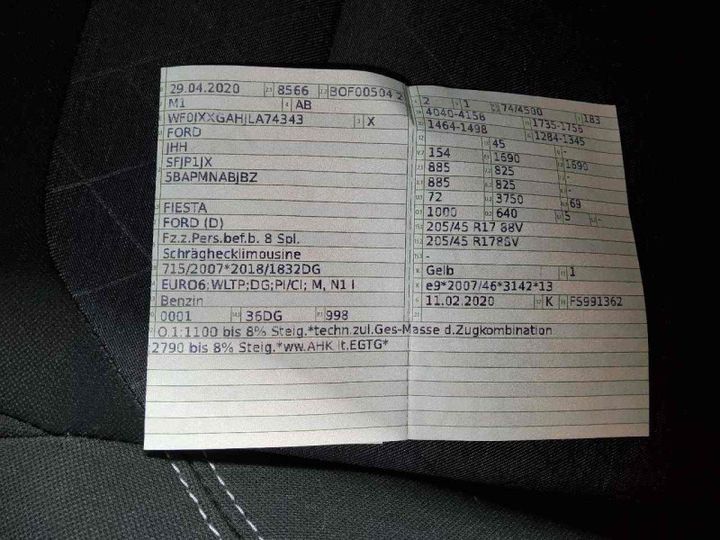 29.04.2020 8566 BOF00504 2
M1 AB
WF0JXXGAHJLA74343 X
FORD
JHH
SFJP1JX
5BAPMNABJBZ
FIESTA
FORD (D)
Fz.z.Pers.bef.b. 8 Spl.
Schräghecklimousine
715/2007*2018/1832DG
EURO6;WLTP;DG;PI/CI; M, N1 I
Benzin
0001 36DG 998
O.1:1100 bis 8% Steig.*techn.zul.Ges-Masse d.Zugkombination
2790 bis 8% Steig.*ww.AHK lt.EGTG*
2 1 74/4500 183
4040-4158 1735-1756
1464-1498 1284-1345
45 -
154 1690 1690
885 825 -
885 825 -
72 3750 69
1000 640 5 -
205/45 R17 88V
205/45 R1788V
-
Gelb 1
e9*2007/46*3142*13
11.02.2020 K FS991362